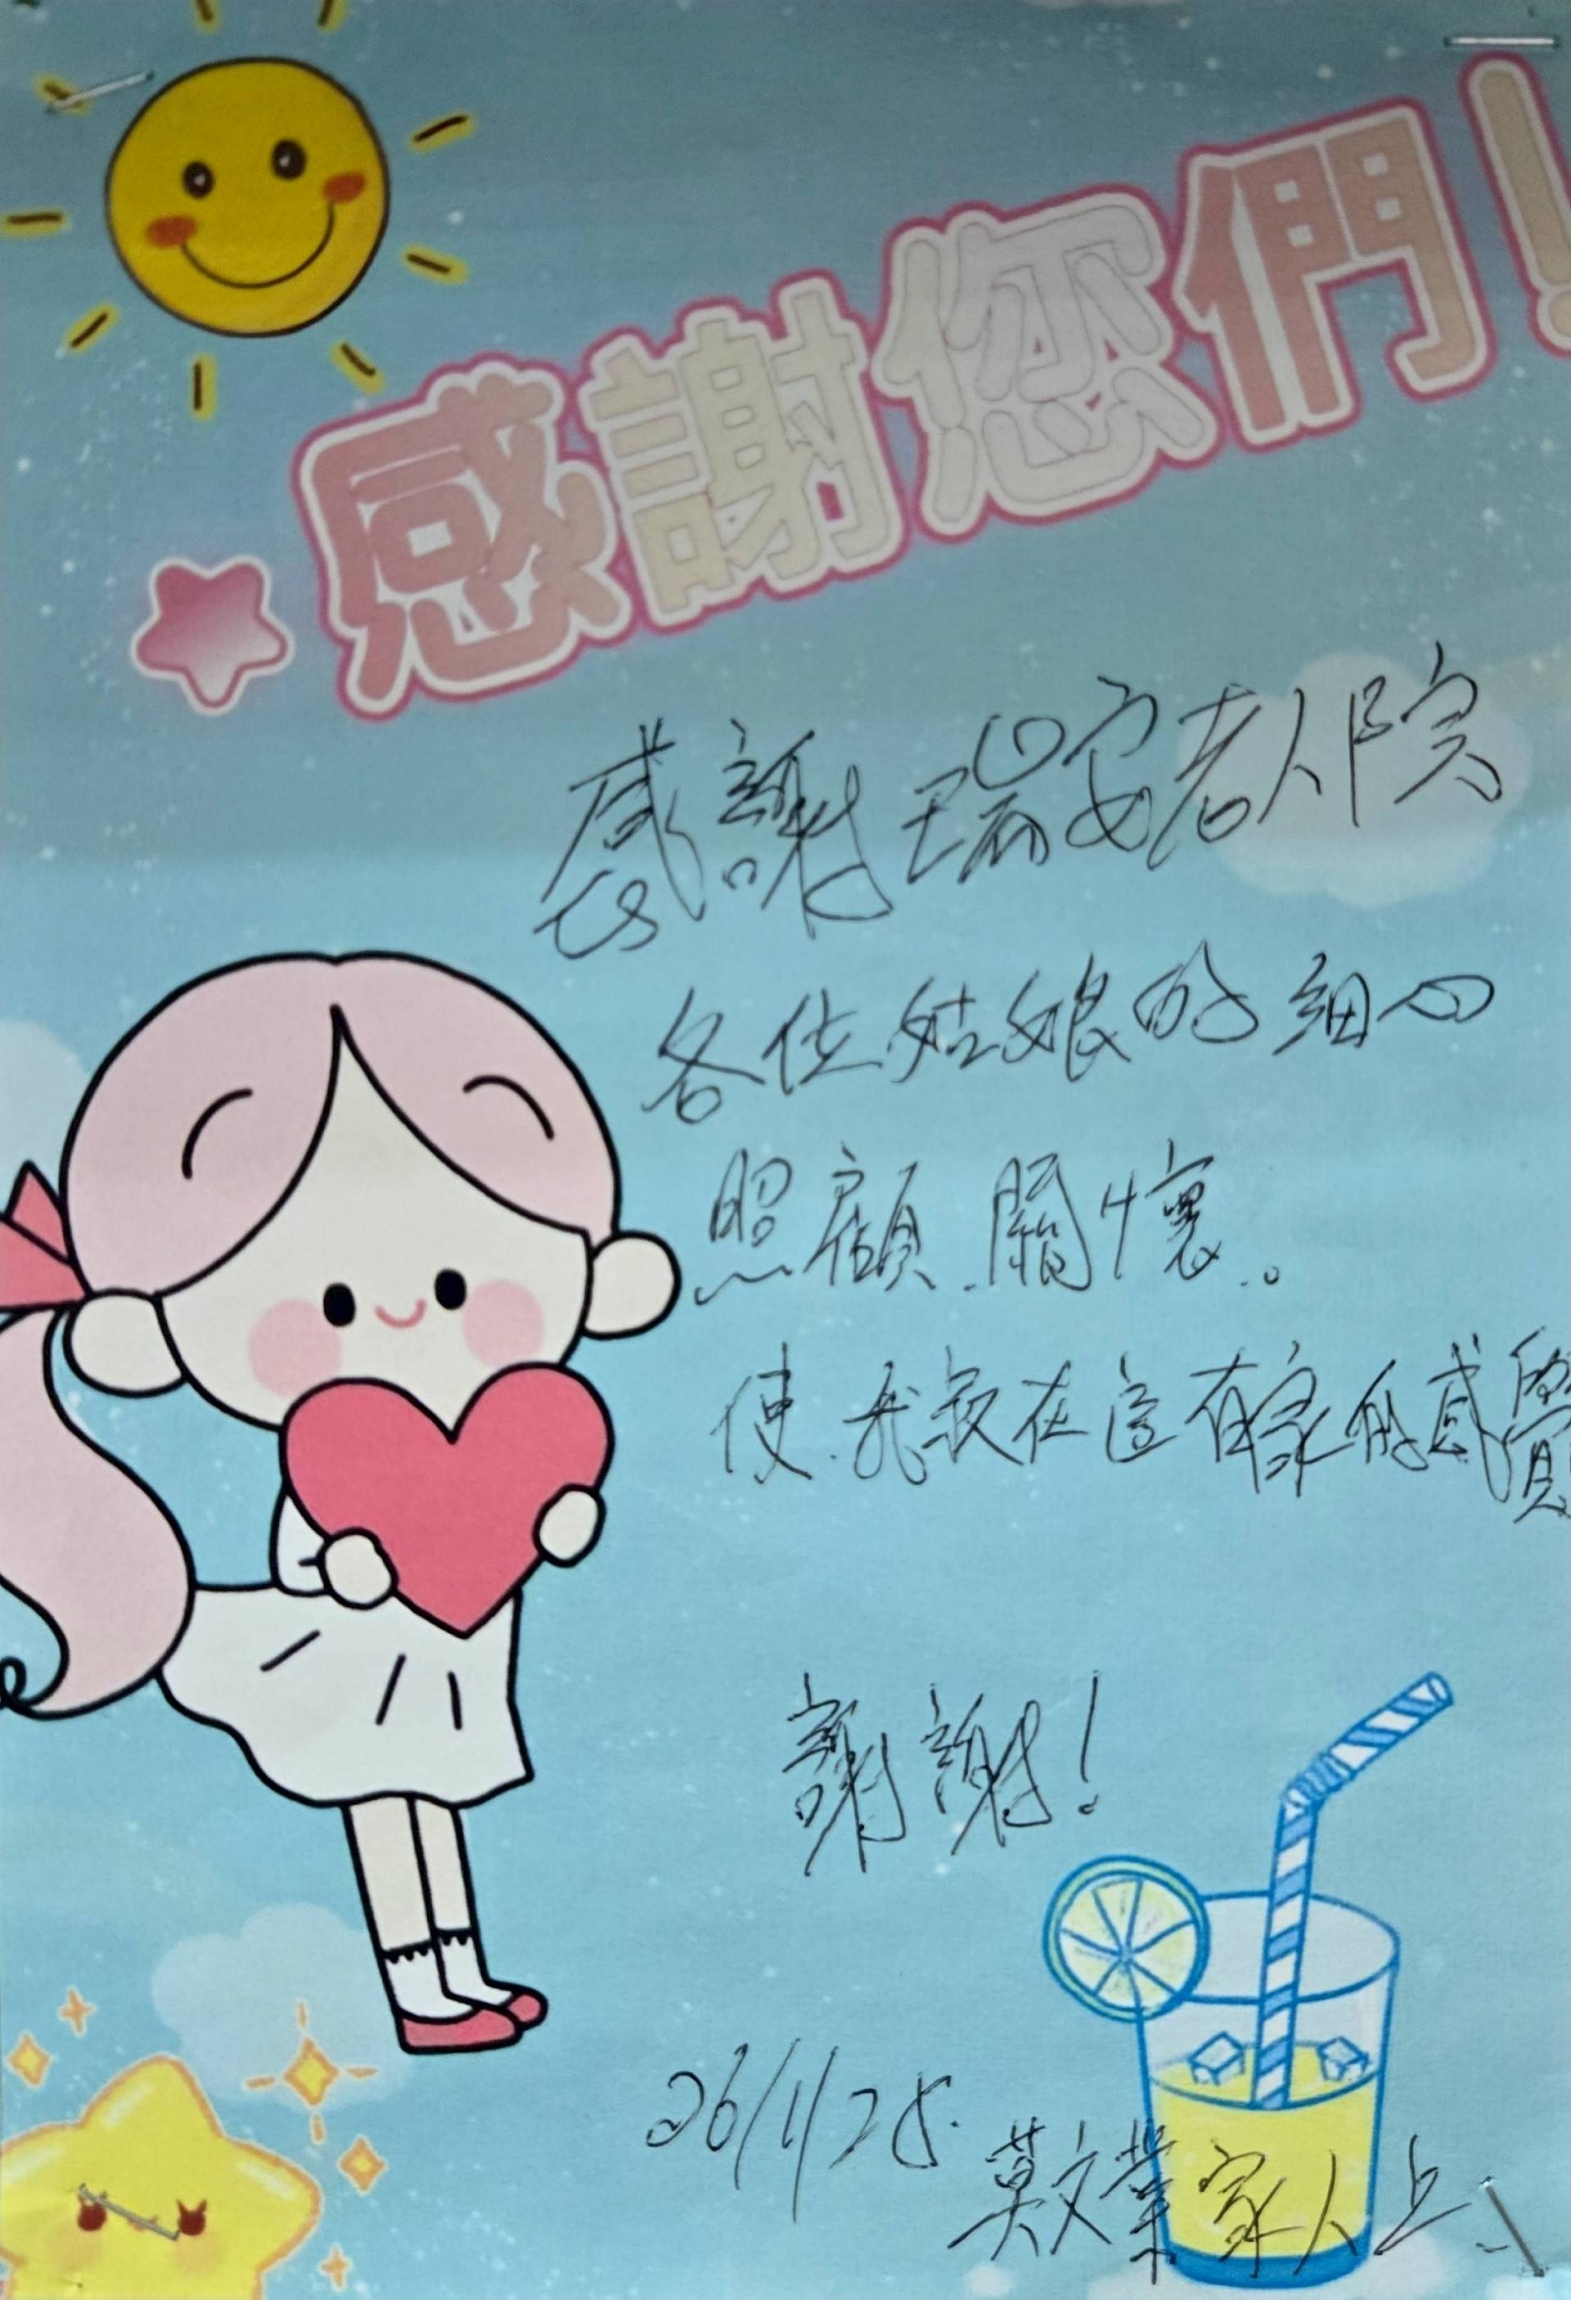 感謝您們!
感謝瑞安老人院
各位姑娘的細心
照顧.關懷。
使我叔在這有家的感覺
謝謝!
26/1/28.
莫文業家人上